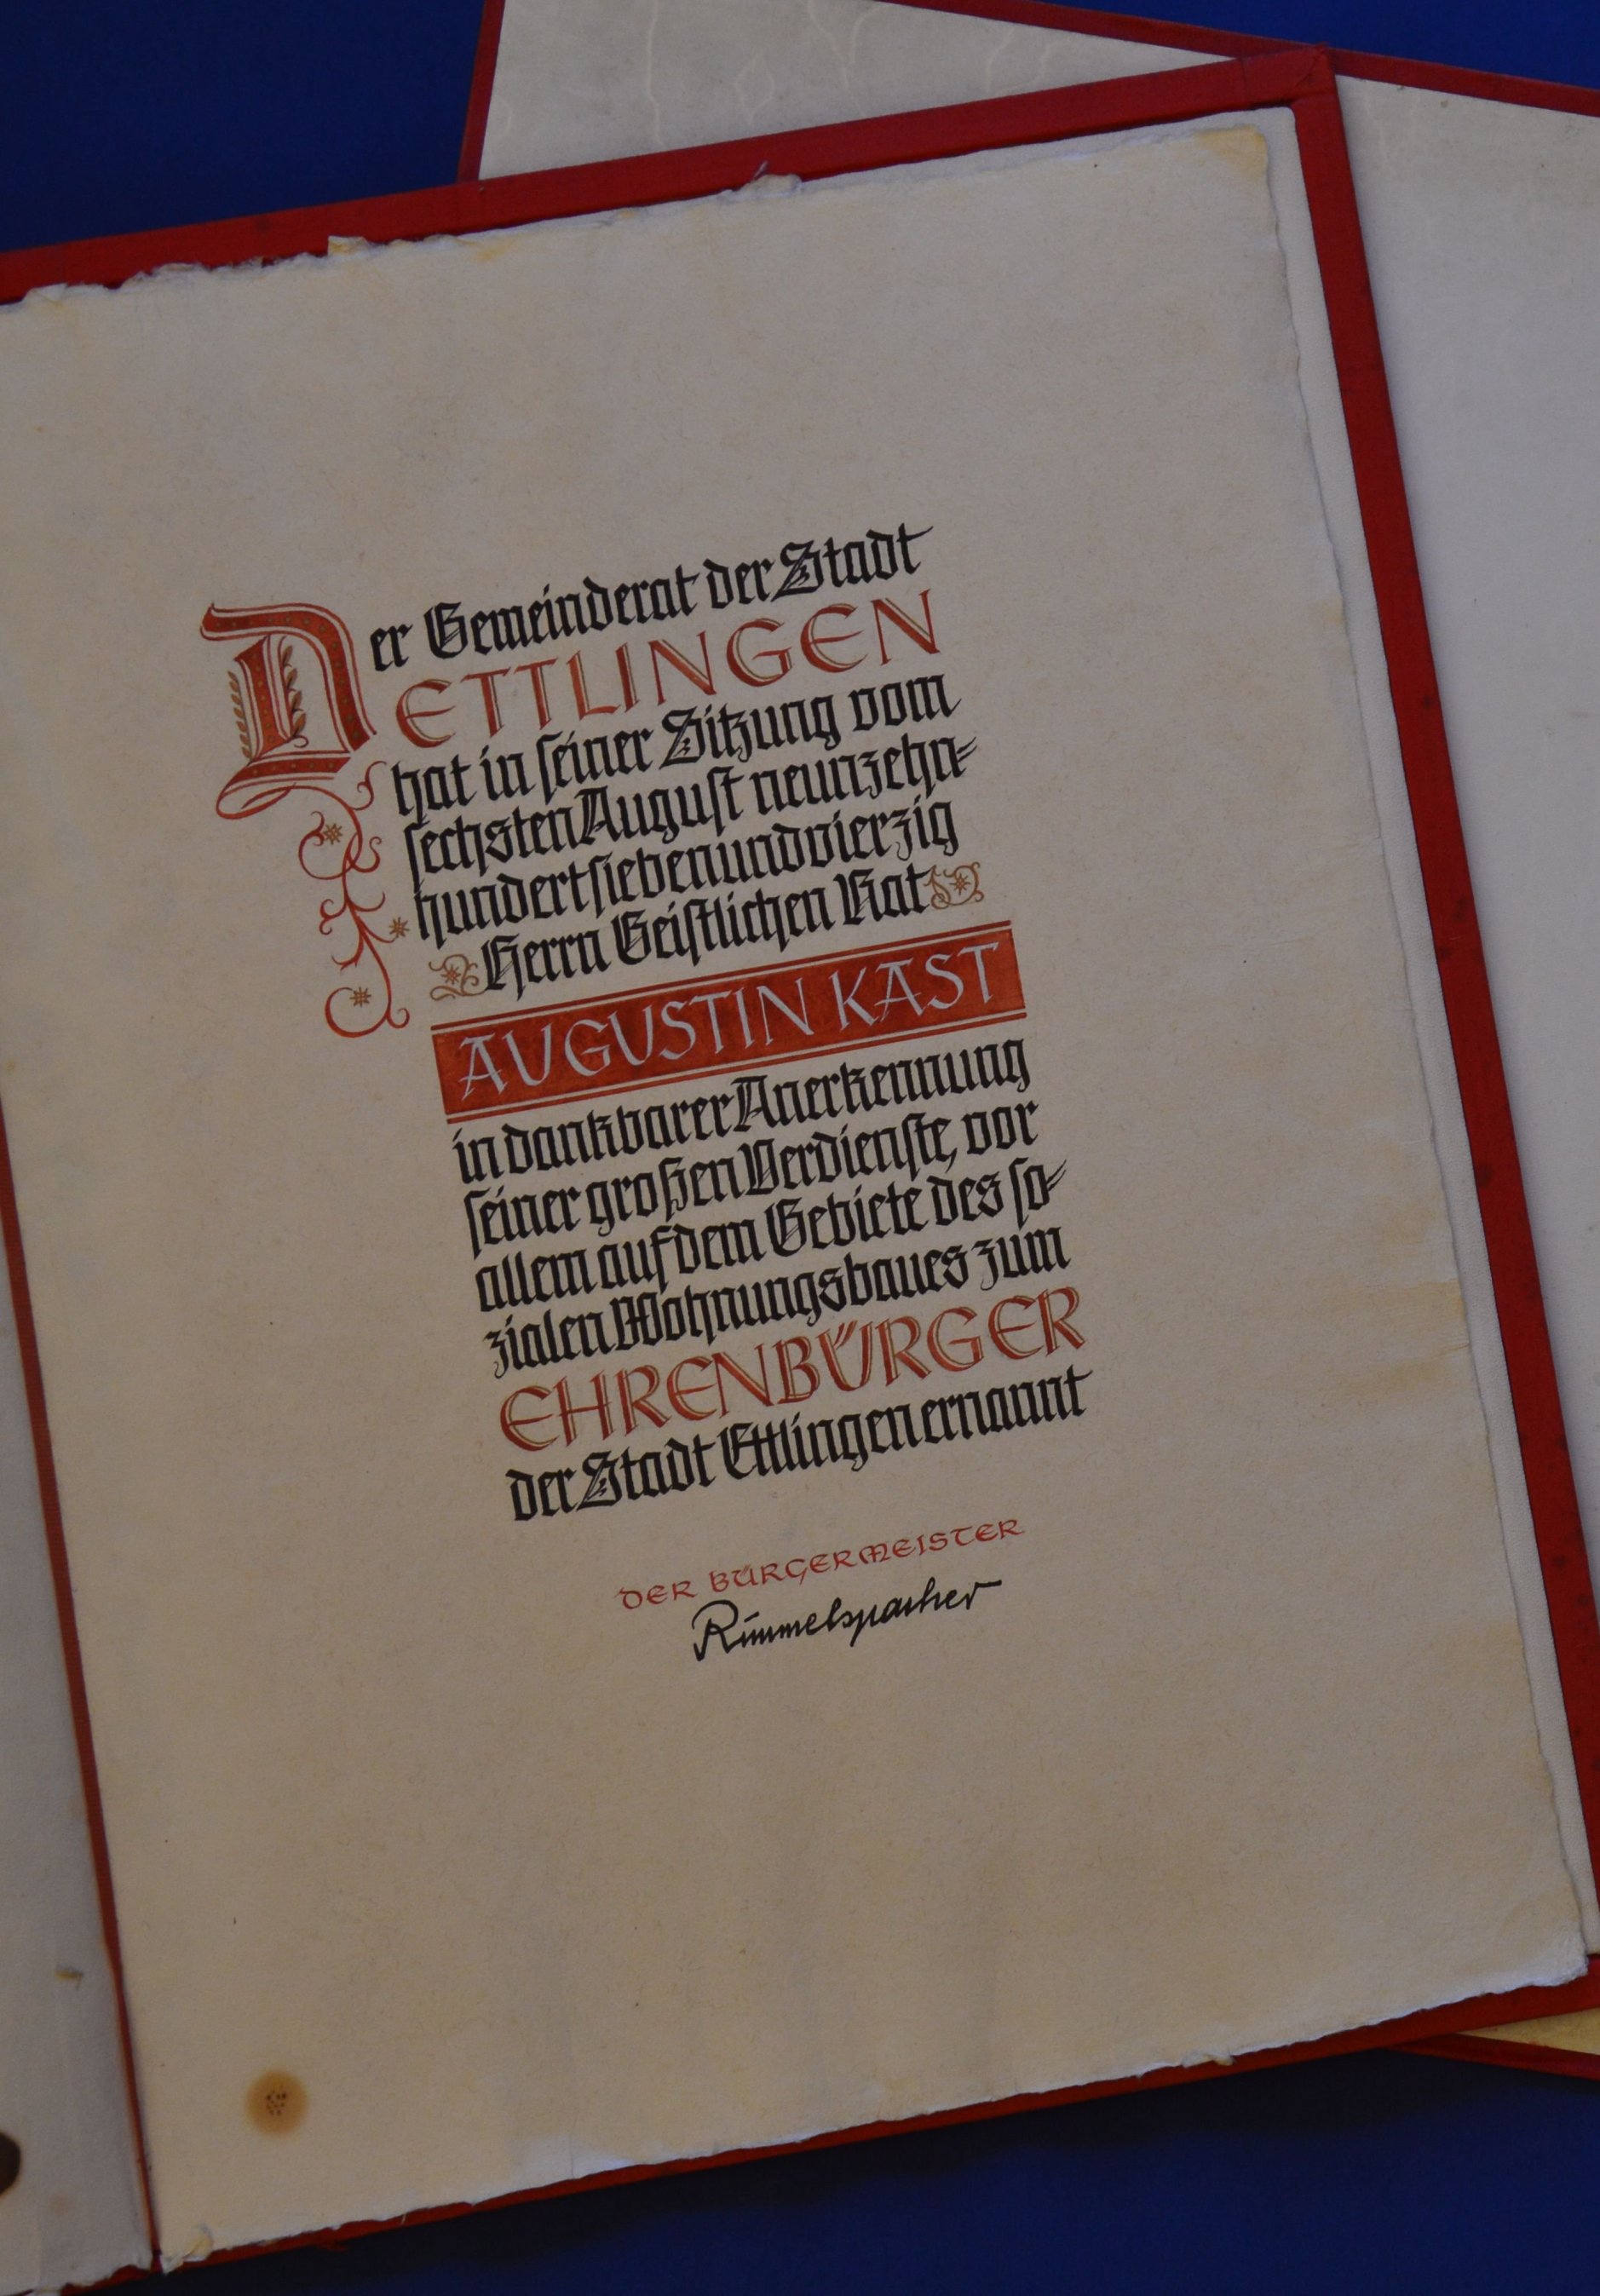 Der Gemeinderat der Stadt
ETTLINGEN
hat in seiner Sitzung vom
sechsten August neunzehn-
hundertsiebenundvierzig
Herrn Geistlichen Rat
AUGUSTIN KAST
in dankbarer Anerkennung
seiner großen Verdienste, vor
allem auf dem Gebiete des so-
zialen Wohnungsbaues zum
EHRENBÜRGER
der Stadt Ettlingen ernannt
DER BÜRGERMEISTER
Rimmelspacher